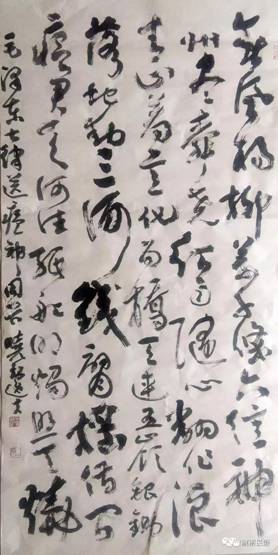 春风杨柳万千条六亿神
州尽舜尧红雨随心翻作浪
青山着意化为桥天连五岭银锄
落地动三河铁臂摇借问
瘟君欲何往纸船明烛照天烧
毛泽东七律送瘟神